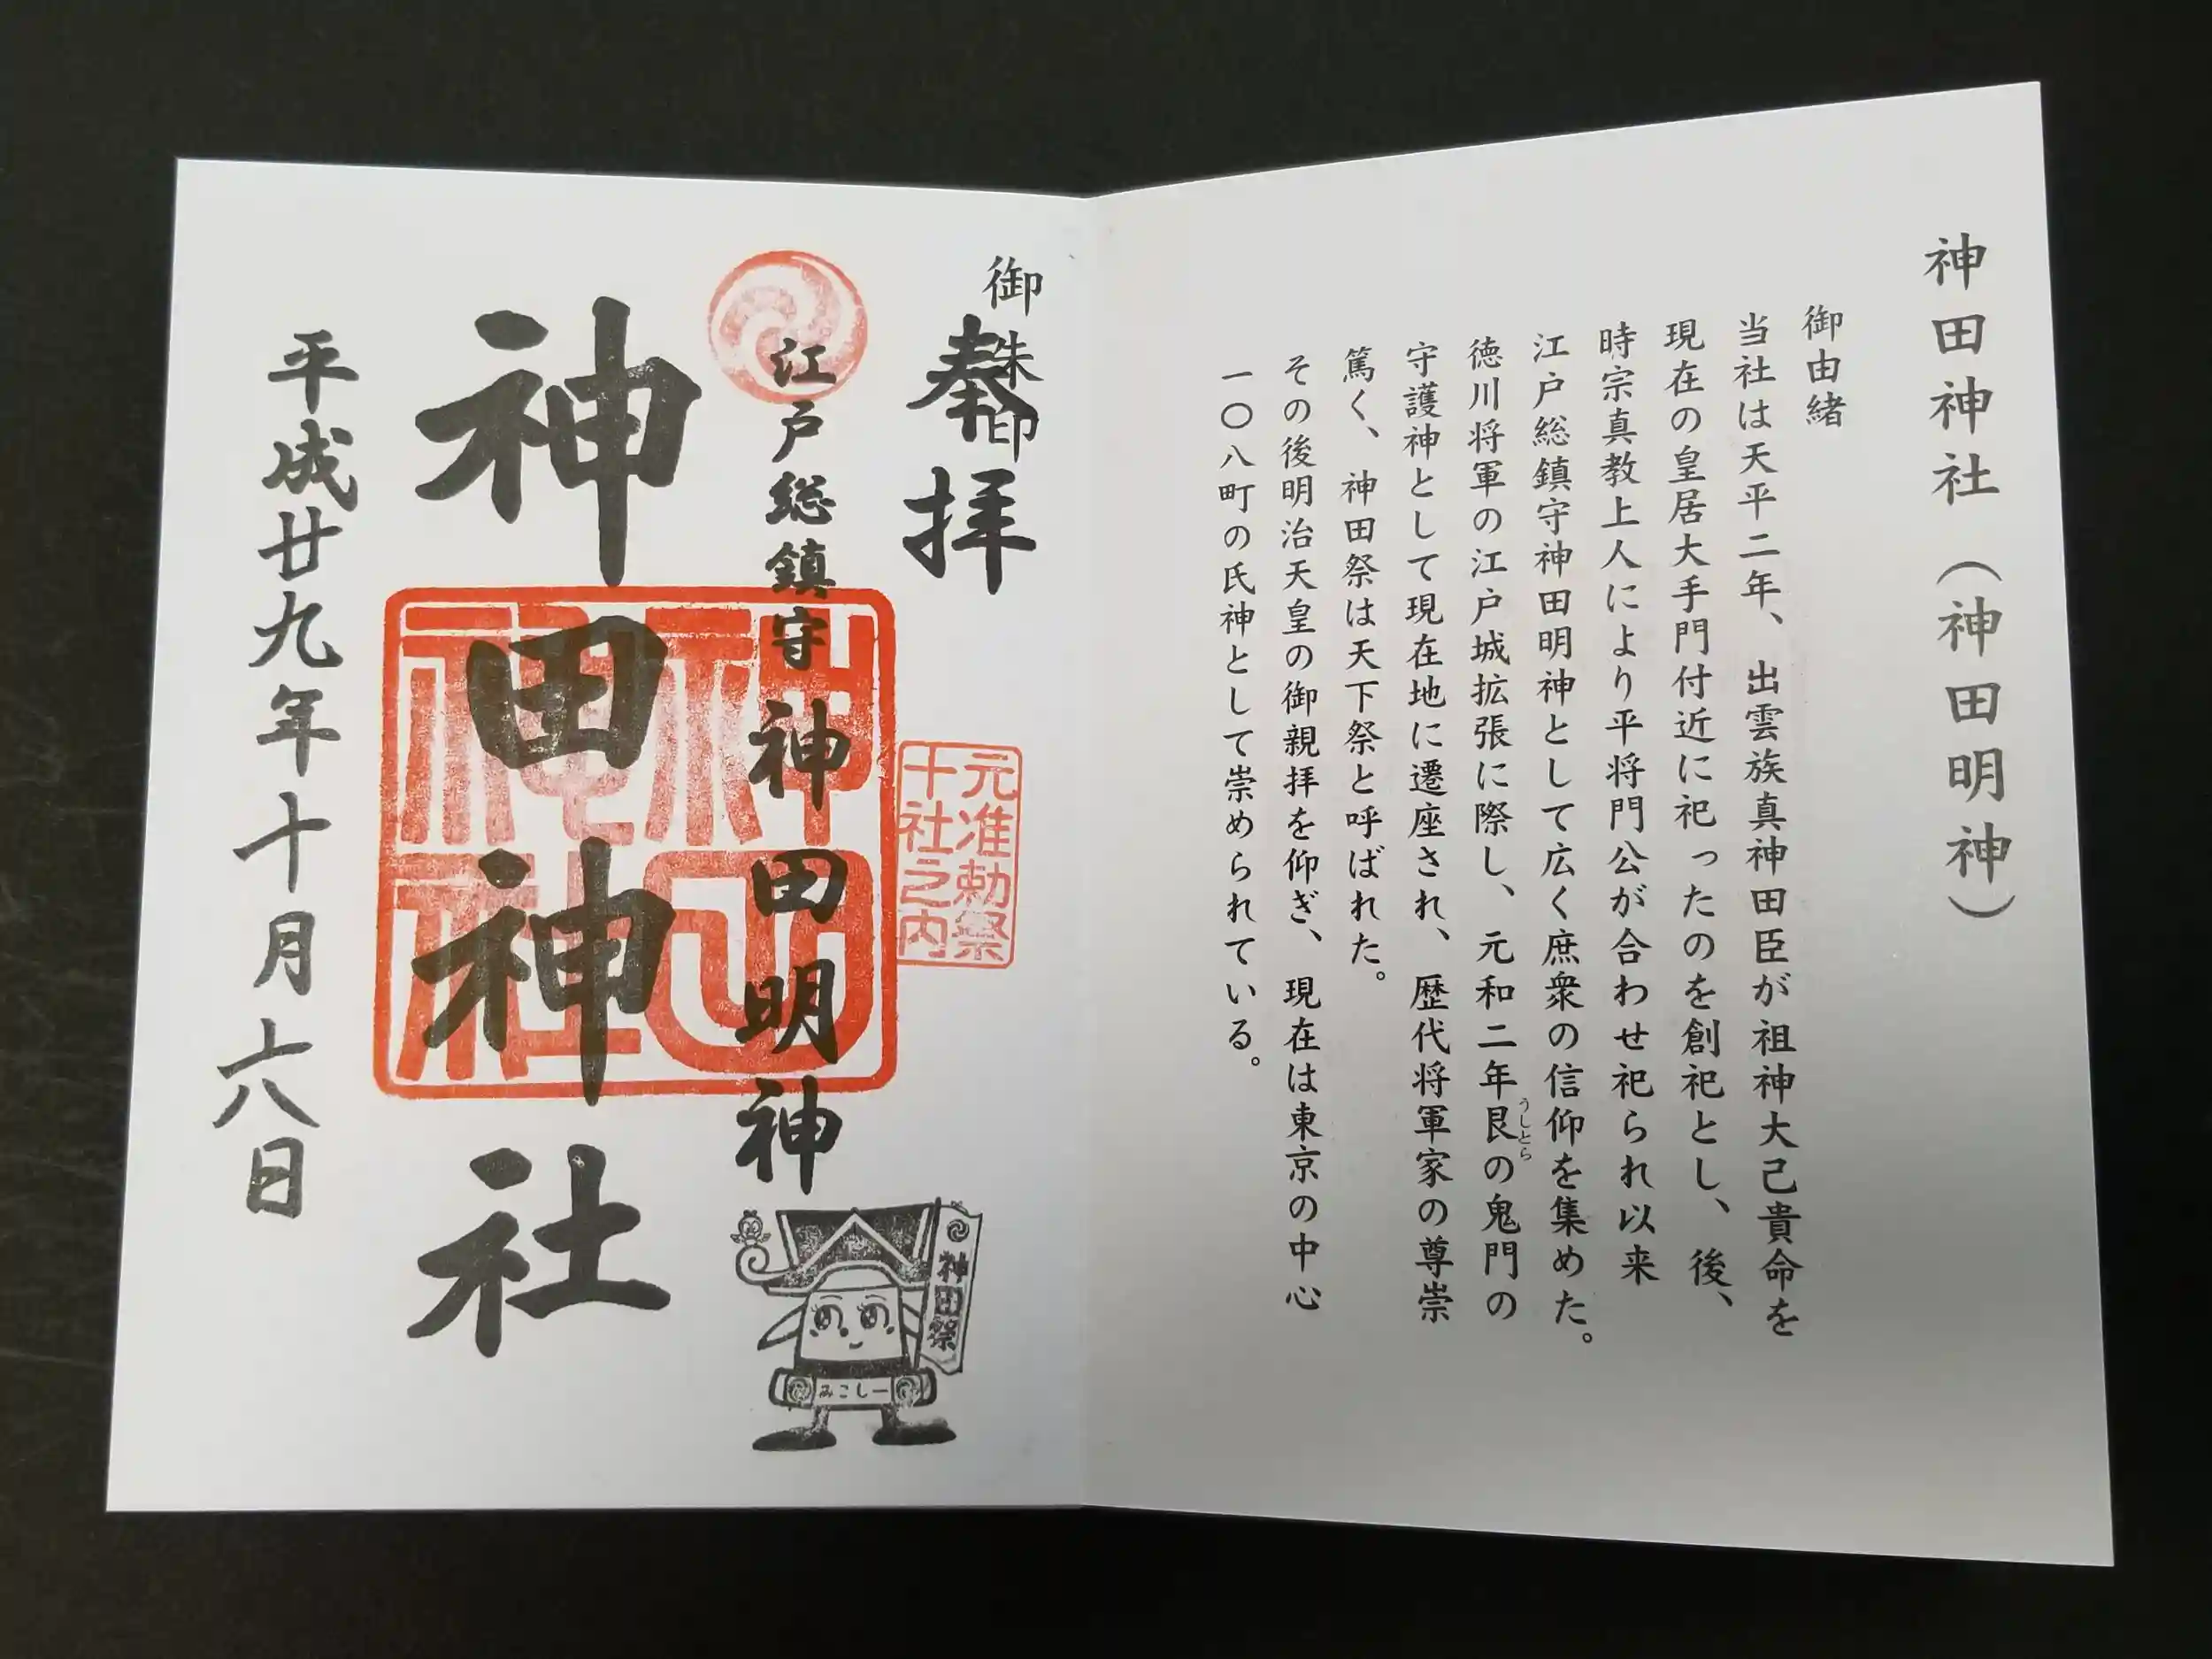 神田神社（神田明神）
御由緒
当社は天平二年、出雲族真神田臣が祖神大己貴命を
現在の皇居大手門付近に祀ったのを創祀とし、後、
時宗真教上人により平将門公が合わせ祀られ以来
江戸総鎮守神田明神として広く庶衆の信仰を集めた。
徳川将軍の江戸城拡張に際し、元和二年艮の鬼門の
うしとら
守護神として現在地に遷座され、歴代将軍家の尊崇
篤く、神田祭は天下祭と呼ばれた。
その後明治天皇の御親拝を仰ぎ、現在は東京の中心
一〇八町の氏神として崇められている。
御朱印
奉拝
元准勅祭
十社之内
江戸総鎮守神田明神
神田祭
みこしー
神田神社
神田
神社
平成廿九年十月六日